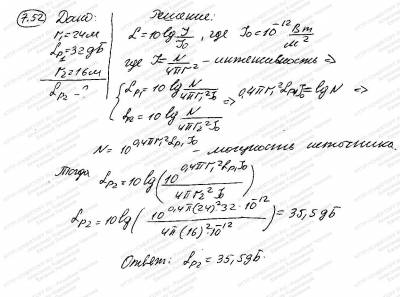 7.52 Дано: Решение:
r₁=24м
Lp₁=32дБ
r₂=16м
Lp₂-?
L=10lg J/J₀, где J₀=10⁻¹² Вт/м²
где J=N/4πr² - интенсивность ⇒
{Lp₁=10lg N/4πr₁²J₀ ⇒ 0,4πr₁²Lp₁J₀=lgN ⇒
Lp₂=10lg N/4πr₂²J₀
N=10^(0,4πr₁²Lp₁J₀) - мощность источника.
Тогда Lp₂=10lg(10^(0,4πr₁²Lp₁J₀)/4πr₂²J₀)
Lp₂=10lg(10^(0,4π(24)²·32·10⁻¹²)/4π(16)²·10⁻¹²)=35,5дБ
Ответ: Lp₂=35,5дБ.